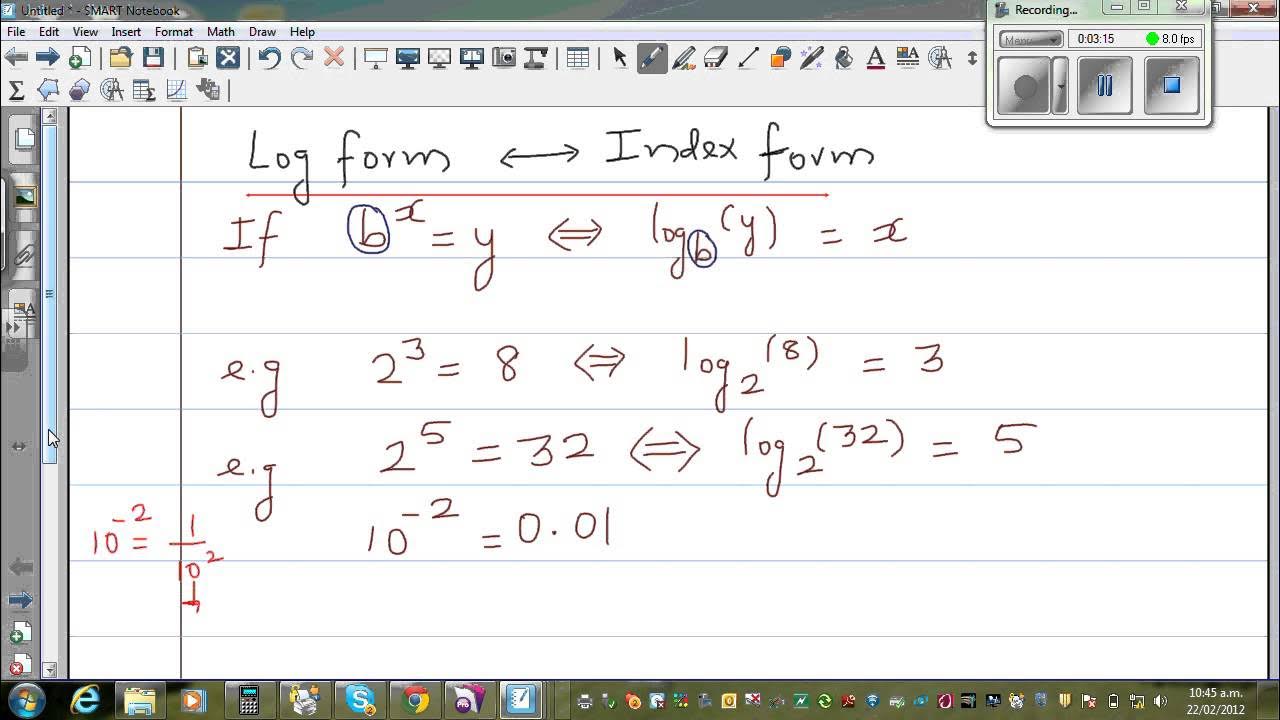 Untitled * - SMART Notebook
File Edit View Insert Format Math Draw Help
Recording...
Menu 0:03:15 8.0 fps
Log form ⟷ Index form
If b^x = y ⇔ log_b(y) = x
e.g 2^3 = 8 ⇔ log_2(8) = 3
e.g 2^5 = 32 ⇔ log_2(32) = 5
10^-2 = 0.01
10^-2 = 1/10^2
10:45 a.m.
22/02/2012